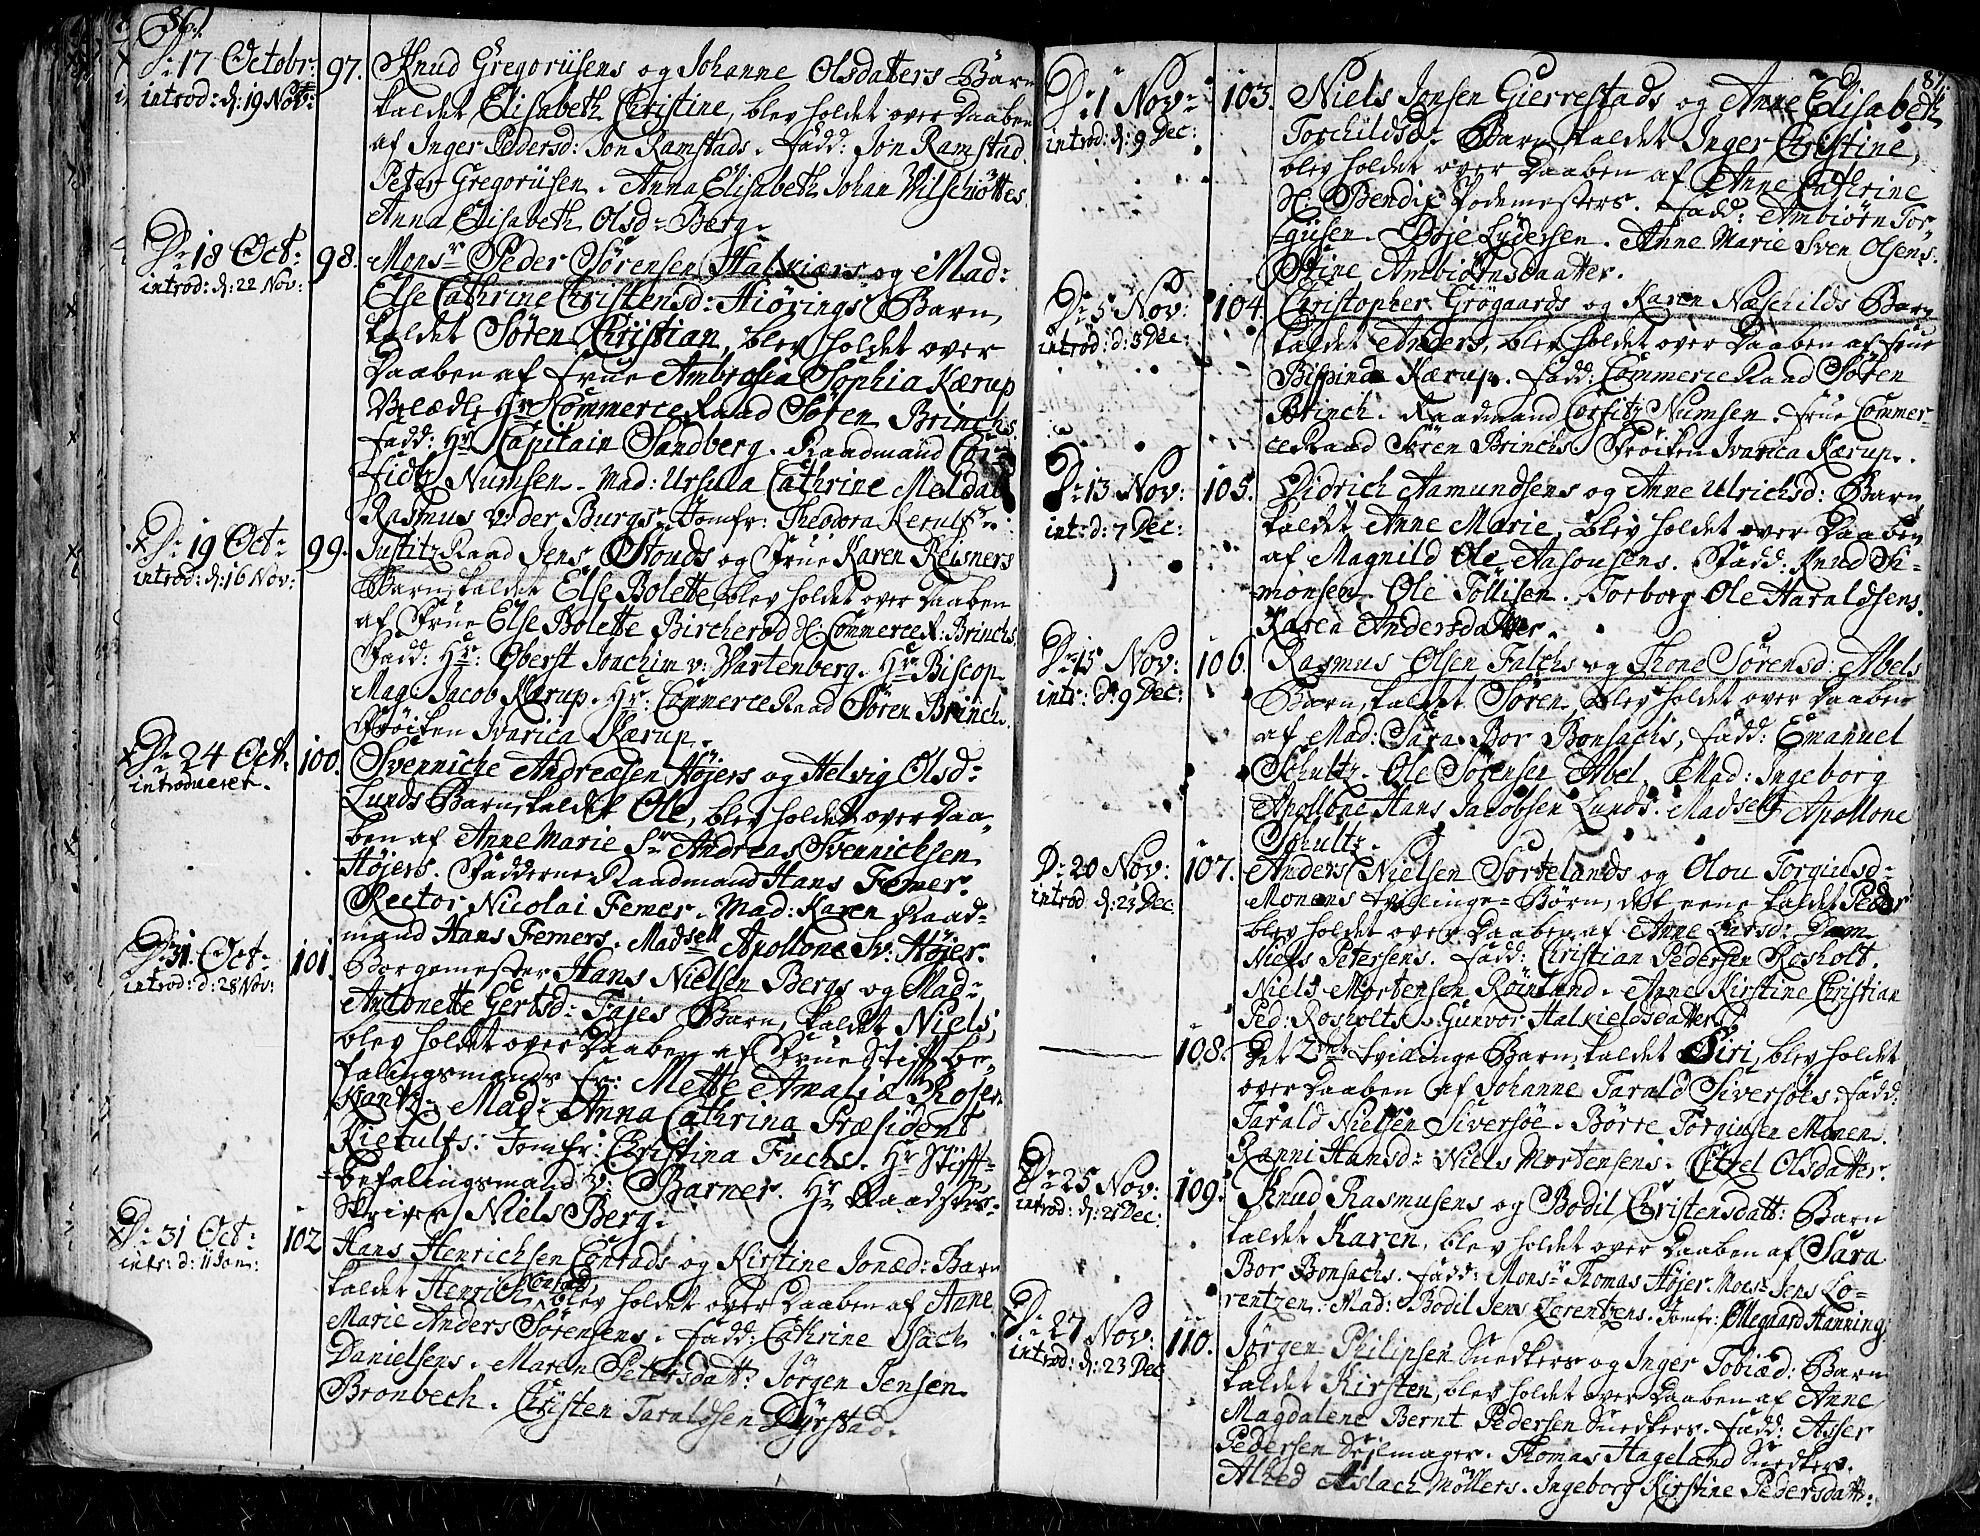 86.
D: 17 Octobr: 97. Knud Gregoriisens og Johanne Olsdatters Barn
introd: d: 19 Novt: kaldet Elisabeth Christine, blev holdet over Daaben
af Inger Pedersd: Jon Ramstads. Fadd: Jon Ramstad.
Peter Gregoriisen. Anna Elisabeth Johan Vilschiöttes
Anna Elisabeth Olsd: Berg.
D: 18 Oct: 98. Monsr Peder Sörensen Halkiærs og Mad:
introd: d: 22 Nov: Else Cathrine Christensd: Hiörings Barn
kaldet Sören Christian, blev holdet over
Daaben af Frue Ambrosia Sophia Kærup
Velædle Hr CommerceRaad Sören Brinchs.
Fadd: Hr Capitain Sandberg. Raadmand Cor-
fidtz Numsen. Mad: Ursula Cathrine Meldal
Rasmus v: der Burgs. Jomfr: Theodora
D: 19 Oct: 99. JustitzRaad Jens Stouds og Frue Karen Reisners
introd: d: 16 Nov: Barn, kaldet Else Bolette, blev holdet over Daaben
af Frue Else Bolette Bircherod H: CommerceR: Brinchs
Fadd: Hr: Oberst Joachim v: Wartenberg. Hr Biscop
Mag: Jacob Kærup. Hr: CommerceRaad Sören Brinch.
Fröiken Ivarica Kærup.
D: 24 Oct: 100. Svenniche Andreæsen Höjers og Helvig Olsd:
introdueret. Lunds Barn, kaldet Ole, blev holdet over Daa-
ben af Anne Marie Sr Andreas Svennichsen
Höjers. Fadderne Raadmand Hans Femer.
Rector Nicolai Femer. Mad: Karen Raad-
mand Hans Femers. Madsell Apollone Sv: Höjer.
D: 31. Oct: 101. Borgemester Hans Nielsen Bergs og Mad:
introd: d: 28 Nov: Antonette Gertsd: Fajes Barn, kaldet Niels,
blev holdet over Daaben af Frue Stiftbe-
falingsmands Fr: Mette Amalia Rosen-
krantz. Mad: Anna Cathrina Præsident
Rietults: Jomfr: Christina Fuchs. Hr Stifft-
befalingsmand v: Barner. Hr
skriver Niels Berg.
D: 31 Oct: 102 Hans Henrichsen Conrads og Kirstine Jonæd: Barn
intr: d: 11 Jan: kaldet Henrich Conrad, blev holdet over Daaben af Anne
Marie Anders Sörensens. Fadd: Cathrine Isach
Danielsens. Maren Petersdatt: Jörgen Jensen
Bronbech. Christen Taraldsen Dyrstad.
87.
D: 1 Nov: 103. Niels Jonsen Gierrestads og Anne Elisabeth
introd: d: 9 Dec: Torchildsd: Barn, kaldet Inger Christine,
blev holdet over Daaben af Anne Cathrine
H: Bendix Rodemesters. Fadd: Ambiörn Tor-
giusen. Böje Lydersen. Anne Marie Sven Olsens.
Stine Ambiörnsdaatter.
D: 5 Nov: 104. Christopher Grögaards og Karen Næschilds Barn
introd: d: 8 Dec: kaldet Anders, blev holdet over Daaben af Frue
Bispinde Kærup. Fadd: CommerceRaad Sören
Brinch. Raadmand Corfitz Numsen. Frue Commer-
ceRaad Sören Brinchs. Fröiken Ivarica Kærup.
D: 13 Nov: 105. Didrich Aamundsens og Anne Ulrichsd: Barn
int: d: 7 Dec: kaldet Anne Marie, blev holdet over Daaben
af Magnild Ole Aasousens. Fadd: Knud Si-
monsen. Ole Tollisen. Torborg Ole Haraldsens.
Karen Andersdatter.
D: 15 Nov: 106. Rasmus Olsen Falchs og Thone Sörensd: Abels
intr: d: 9 Dec: Barn, kaldet Sören, blev holdet over Daaben
af Mad: Sara Bor Bonsachs, Fadd: Emanuel
Schultz. Ole Sörensen Abel. Mad: Ingeborg
Apollone Hans Jacobsen Lunds. Madsell Apollone
Schultz.
D: 20 Nov: 107. Anders Nielsen Sortelands og Olou Torgiusd:
introd d: 23 Dec Monens tvillinge-Börn, det eene kaldet Peder
blev holdet over Daaben af Anne Larsd: Dam
Niels Petersens. Fadd: Christian Pedersen Rosholt.
Niels Mortensen Röinland. Anne Kirstine Christian
Ped: Rosholts. Gunvor Halkieldsdatter.
108. Det 2det tvillinge Barn, kaldet Siri, blev holdet
over Daaben af Johanne Tarald Siversöes. Fadd:
Tarald Nielsen Siversöe. Börre Torgiusen Monen.
Ranni Hansd: Niels Mortensens. Citzel Olsdatter.
D: 25 Nov: 109. Knud Rasmusens og Bodil Christensdatt: Barn
introd: d: 21 Dec: kaldet Karen, blev holdet over Daaben af Sara
Bor Bonsachs. Fadd: Monsr Thomas Höjer. Monsr Jens Lo-
rentzen. Mad: Bodil Jens Lorentzens. Jomfr: Ollegaard Hanning
D: 27 Nov: 110. Jörgen Philipsen Snedkers og Inger Tobiæd: Barn
introd: d: 23 Dec kaldet Kirsten, blev holdet over Daaben af Anne
Magdalene Bernt Pedersen Snedkers. Fadd: Asser
Pedersen Sejlmager. Thomas Hageland Snedker.
Alhed Aslach Möllers. Ingeborg Kirstine Pedersdatt: